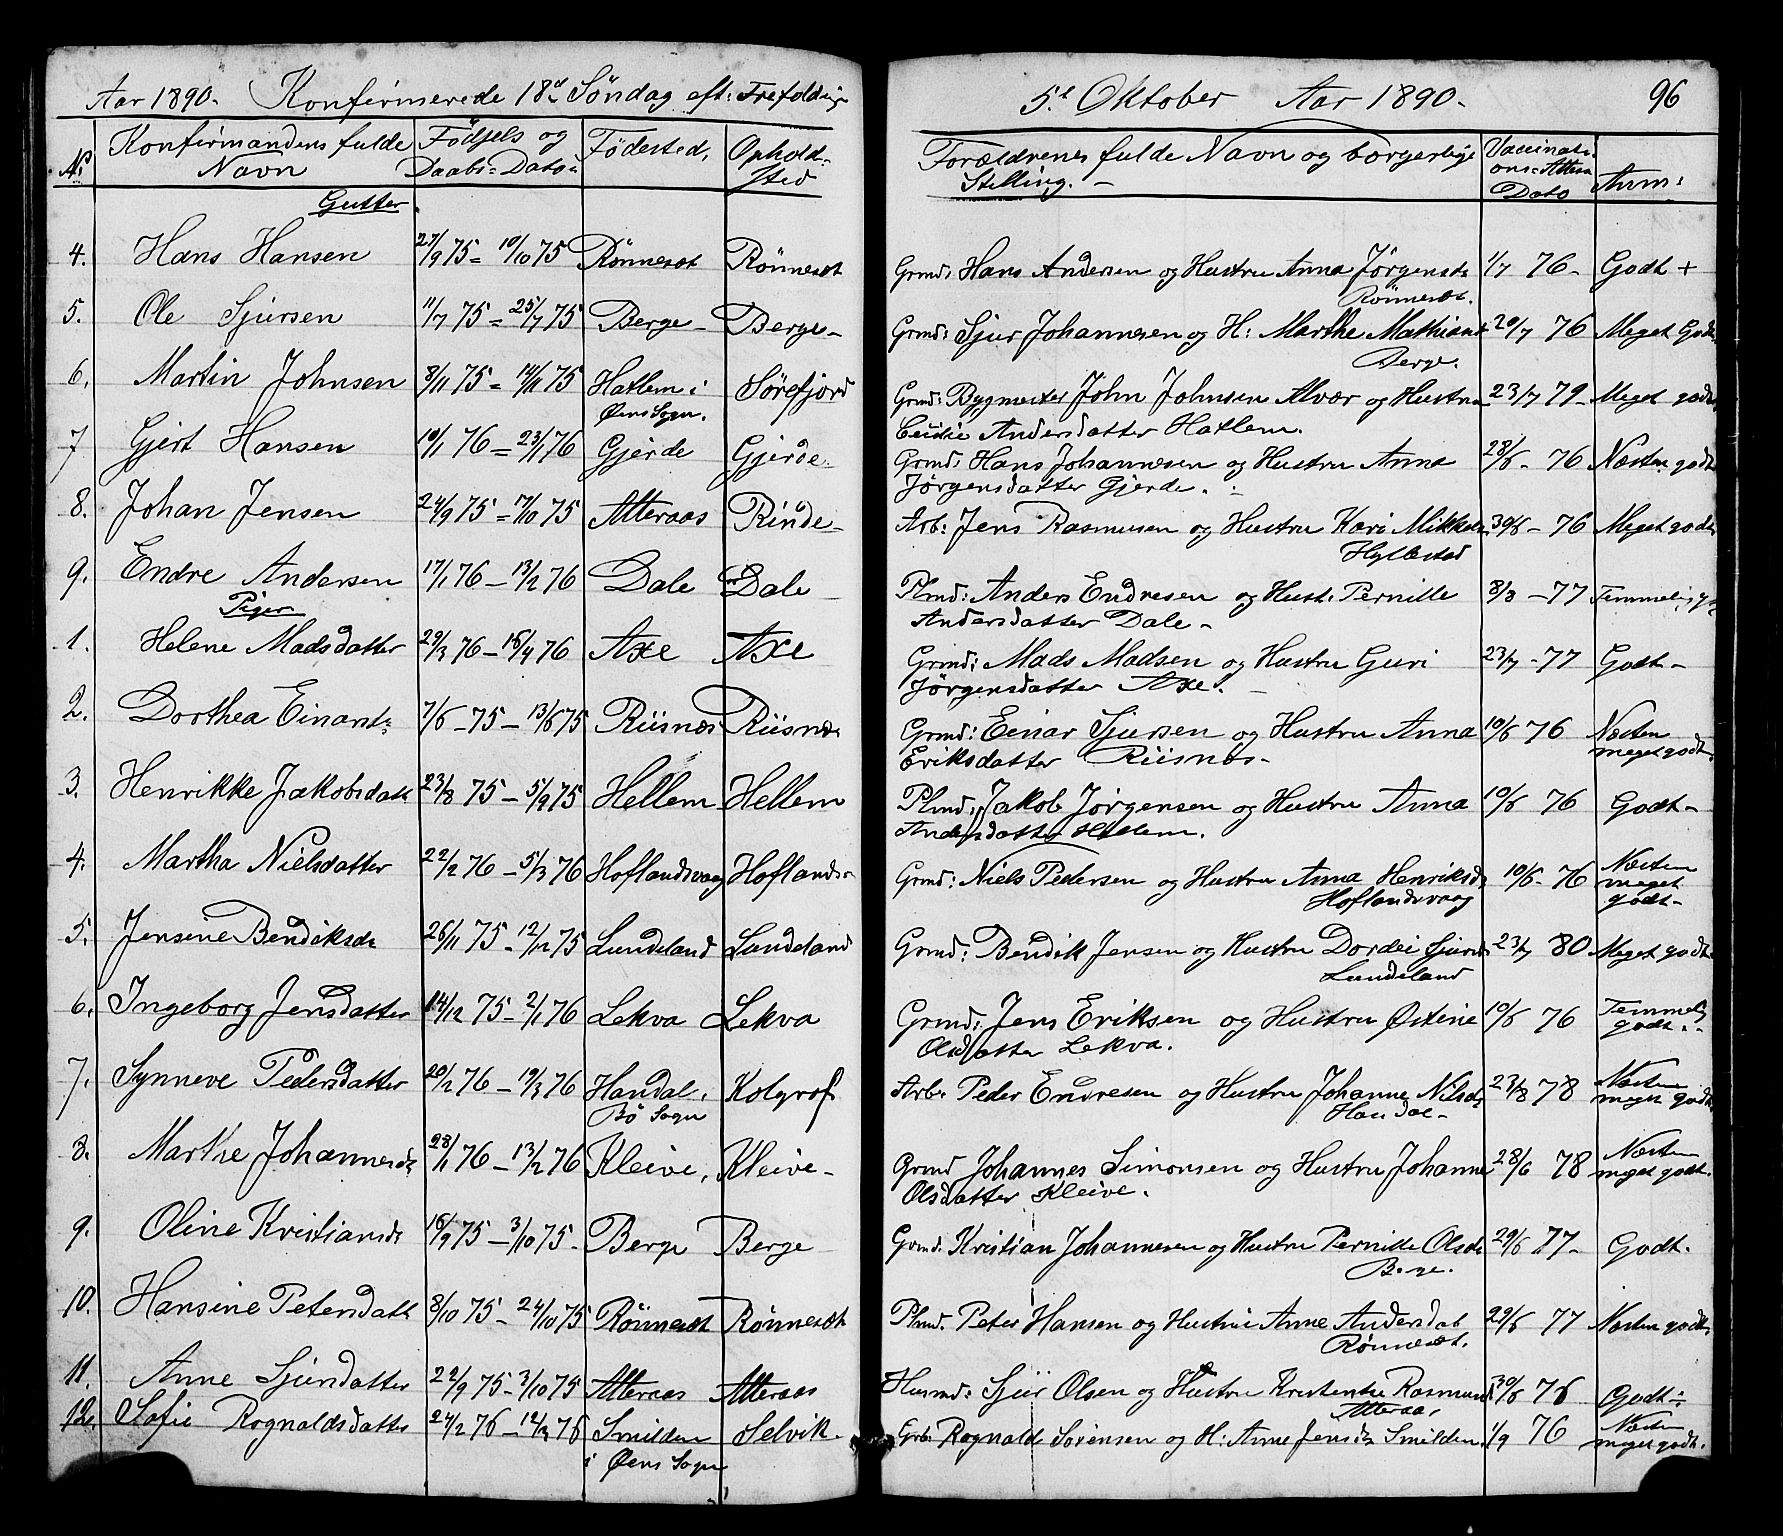 Aar 1890. Konfirmerede 18de Søndag eft: Trefoldigh
No Konfirmandens fulde Navn Fødsels og Daabs-Dato: Fødested. Opholdsted
Gutter
4. Hans Hansen 27/9 75 = 10/10 75 Rönnesæt Rönnesæt
5. Ole Sjursen 11/7 75 = 25/7 75 Berge - Berge -
6. Martin Johnsen 8/11 75 = 14/11 75 Hatlem i Sørefjord
Øens Sogn.
7 Gjert Hansen 10/1 76 = 23/1 76 Gjerde Gjerde.
8. Johan Jensen 24/9 75 = 7/10 75 Atteraas Rinde -
9. Endre Andersen 17/1 76 - 13/2 76 Dale Dale
Piger
1. Helene Madsdatter 29/3 76 - 16/4 76 Axe Axe
2. Dorthea Einarsd: 7/6 - 75 - 13/6 75 Riisnæs Riisnæs
3. Henrikke Jakobsdatt 23/8 75 - 5/9 75 Hellem Hellem
4. Martha Nielsdatter 22/2 76 - 5/3 76 Hoflandsvaag Hoflands
5. Jensine Bendiksd 26/11 75 - 12/12 75 Lundeland Lundeland
6. Ingeborg Jensdatter 14/12 75 - 2/1 76 Lekva Lekva
7. Synneve Pedersdatter 20/2 76 - 19/3 76 Handal. Kolgrof
Bö Sogn
8. Marthe Johannesd 28/1 76 - 13/2 76 Kleive, Kleive -
9. Oline Kristiansd 16/9 75 - 3/10 75 - Berge Berge
10. Hansine Petersdatt 8/10 75 - 24/10 75 Rönnesæt Rönnesæt
11. Anne Sjursdatter 22/9 75 - 3/10 75 Atteraas Atteraas
12. Sofie Rognaldsdatter 24/2 76 - 12/3 76 Smilden Selvik -
i Øens Sogn
5te Oktober Aar 1890. 96
Forældrenes fulde Navn og borgerlige Stilling. - Vaccinations-Attest Dato Anm:
Grmd: Hans Andersen og Hustru Anna Jørgensd 1/7 76 - Godt +
Rönnesæt.
Grmd: Sjur Johannesen og H: Marthe Mathiasd 20/7 76 Meget Godt
Berge.
Grmd: Bygmester John Johnsen Alvær og Hustru 23/7 79 - Meget godt
Cecilie Andersdatter Hatlem.
Grmd: Hans Johannesen og Hustru Anna 28/6 - 76 Næsten godt
Jørgensdatter Gjerde.
Arb: Jens Rasmusen og Hustru Kari Mikkels 30/6 - 76 Meget godt
Hylbested
Plmd: Anders Endresen og Hust. Pernille 8/8 - 77 Temmelig g
Andersdatter Dale -
Grmd: Mads Madsen og Hustru Guri 23/7 - 77 Godt -
Jørgensdatter Axe. -
Grmd: Einar Sjursen og Hustru Anna 10/6 76 Næsten
Eriksdatter Riisnes - meget godt
Plmd: Jakob Jørgensen og Hustru Anna 10/6 76 Godt -
Andersdatter Hellem.
Grmd: Niels Pedersen og Hustru Anna Henriksd 10/6 - 76 Næsten meget godt -
Hoflandsvaag
Grmd: Bendik Jensen og Hustru Dordei Sjursd 23/7 80 Meget godt
Lundeland
Grmd: Jens Eriksen og Hustru Østine 10/6 76 Temmelig
Olsdatter Lekva. godt.
Arb: Peder Endresen og Hustru Johanne Nilsd 23/8 78 Næsten
Handal - meget godt
Grmd Johannes Simonsen og Hustru Johanne 28/6 78 Næsten
Olsdatter Kleive. meget godt.
Grmd. Kristian Johannesen og Hustru Pernille Olsd 29/6 77 - Godt.
Berge.
Plmd. Peter Hansen og Hustru Anne Andersdat 29/6 77 Næsten godt
Rönnesæt.
Husmd: Sjur Olsen og Hustru Kristentse Rasmusd 30/6 76 Godt
Atteraas
Grb: Rognald Sörensen og H: Anne Jensd Smilden. 1/9 76 Næsten
meget godt.